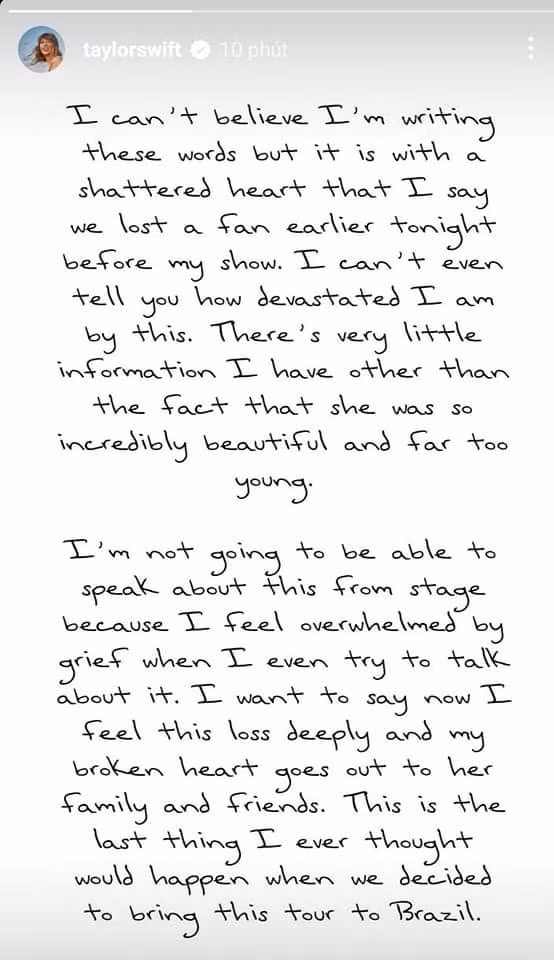 taylorswift 10 phút
I can't believe I'm writing
these words but it is with a
shattered heart that I say
we lost a fan earlier tonight
before my show. I can't even
tell you how devastated I am
by this. There's very little
information I have other than
the fact that she was so
incredibly beautiful and far too
young.
I'm not going to be able to
speak about this from stage
because I feel overwhelmed by
grief when I even try to talk
about it. I want to say now I
feel this loss deeply and my
broken heart goes out to her
family and friends. This is the
last thing I ever thought
would happen when we decided
to bring this tour to Brazil.